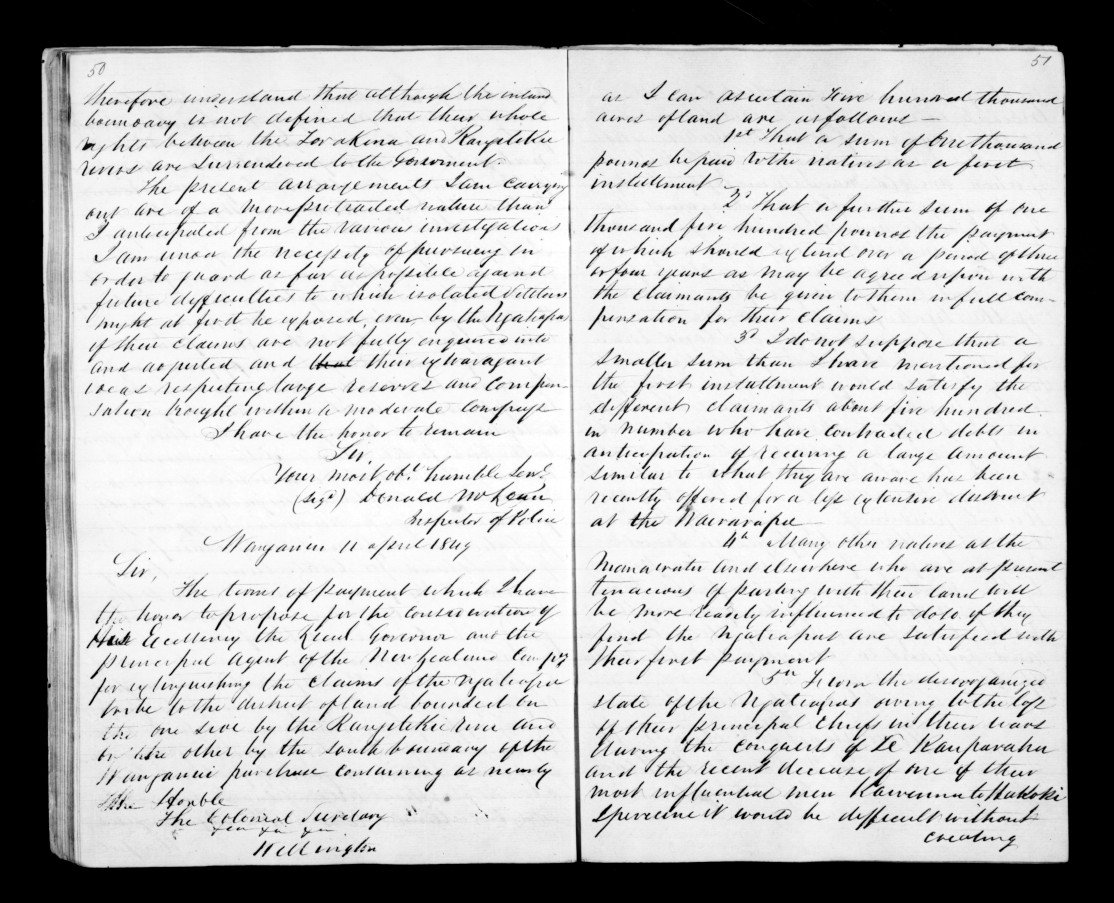 50
therefore understand that although the inland
boundary is not defined that their whole
rights between the Turakina and Rangitikei
rivers are surrendered to the Government.
The present arrangements I am carrying
out are of a more protracted nature than
I anticipated from the various investigations
I am under the necessity of pursuing in
order to guard as far as possible against
future difficulties to which isolated Settlers
might at first be exposed, even by the Ngatiapas
if their claims are not fully enquired into
and adjusted and their extravagant
ideas respecting large reserves and compen-
sation brought within a moderate compass
I have the honor to remain
Sir,
Your most obt. humble Servt
(Sigd) Donald McLean
Inspector of Police
Wanganui 11 April 1849
Sir,
The terms of payment which I have
the honor to propose for the consideration of
Excellency the Lieut Governor and the
principal Agent of the New Zealand Compy
for extinguishing the claims of the Ngatiapa
tribe to the district of land bounded on
the one side by the Rangitikei river and
on the other by the south boundary of the
Wanganui purchase containing as nearly
The Honble
The Colonial Secretary
Wellington
51
as I can ascertain five hundred thousand
acres of land are as follows -
1st That a sum of One thousand
pounds be paid to the natives as a first
installment -
2d That a further sum of one
thousand five hundred pounds the payment
of which should extend over a period of three
or four years as may be agreed upon with
the claimants be given to them in full com-
pensation for their claims
3d I do not suppose that a
smaller sum than I have mentioned for
the first installment would satisfy the
different claimants about five hundred
in number who have contracted debts in
anticipation of receiving a large amount
similar to what they are aware has been
recently offered for a less extensive district
at the Wairarapa
4th Many other natives at the
Manawatu and elsewhere who are at present
tenacious of parting with their land will
be more readily influenced to do so if they
find the Ngatiapas are satisfied with
their first payment
5th From the disorganized
state of the Ngatiapas owing to the loss
of their principal chiefs in their wars
during the conquests of Te Rauparaha
and the recent decease of one of their
most influential men
it would be difficult without
creating